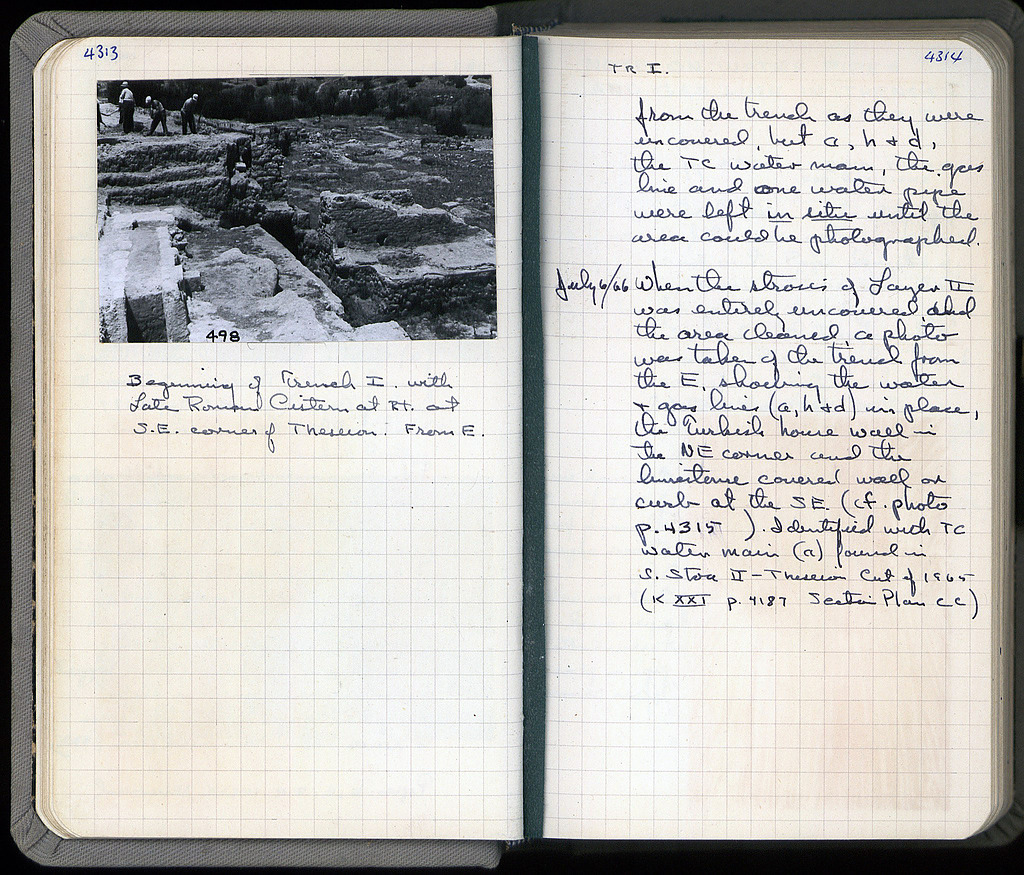 4313
498
Beginning of Trench I. with
Late Roman Cistern at Rt. at
S.E. corner of Theseion. From E.
4314
TR I.
from the trench as they were
uncovered, but a, h + d,
the TC water main, the gas
line and one water pipe
were left in situ until the
area could be photographed.
July 6/66 When the strosis of Layer II
was entirely uncovered and
the area cleaned, a photo
was taken of the trench from
the E, showing the water
+ gas lines (a, h + d) in place,
the Turkish house wall in
the NE corner and the
limestone covered wall or
curb at the SE. (cf. photo
p. 4315 ). Identified with TC
water main (a) found in
S. Stoa II - Theseion Cut of 1965
(K XXI p. 4187 Section Plan CC)